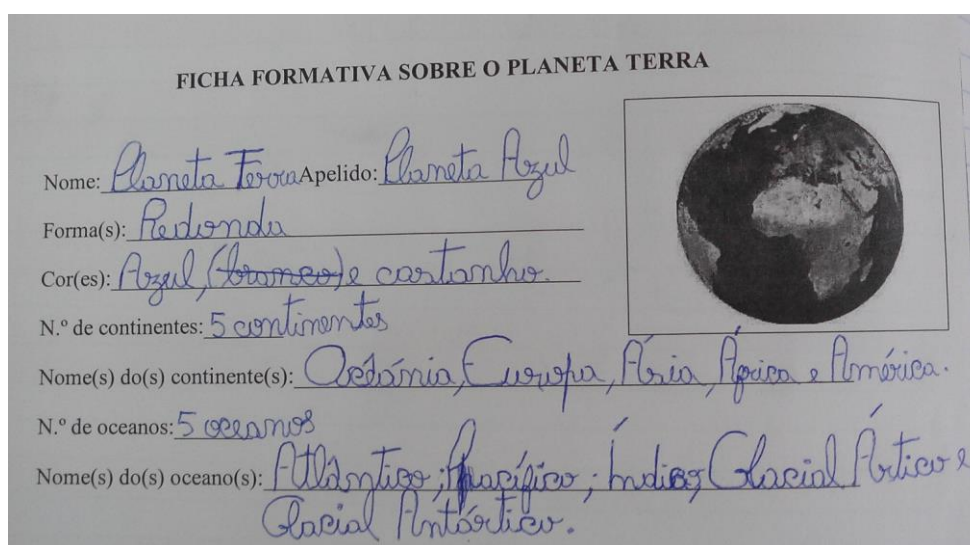 FICHA FORMATIVA SOBRE O PLANETA TERRA
Nome: Planeta Terra Apelido: Planeta Azul
Forma(s): Redonda
Cor(es): Azul, (branco) e castanho.
N.º de continentes: 5 continentes
Nome(s) do(s) continente(s): Oceânia, Europa, Ásia, África e América.
N.º de oceanos: 5 oceanos
Nome(s) do(s) oceano(s): Atlântico; Pacífico; Índico; Glacial Ártico e
Glacial Antártico.